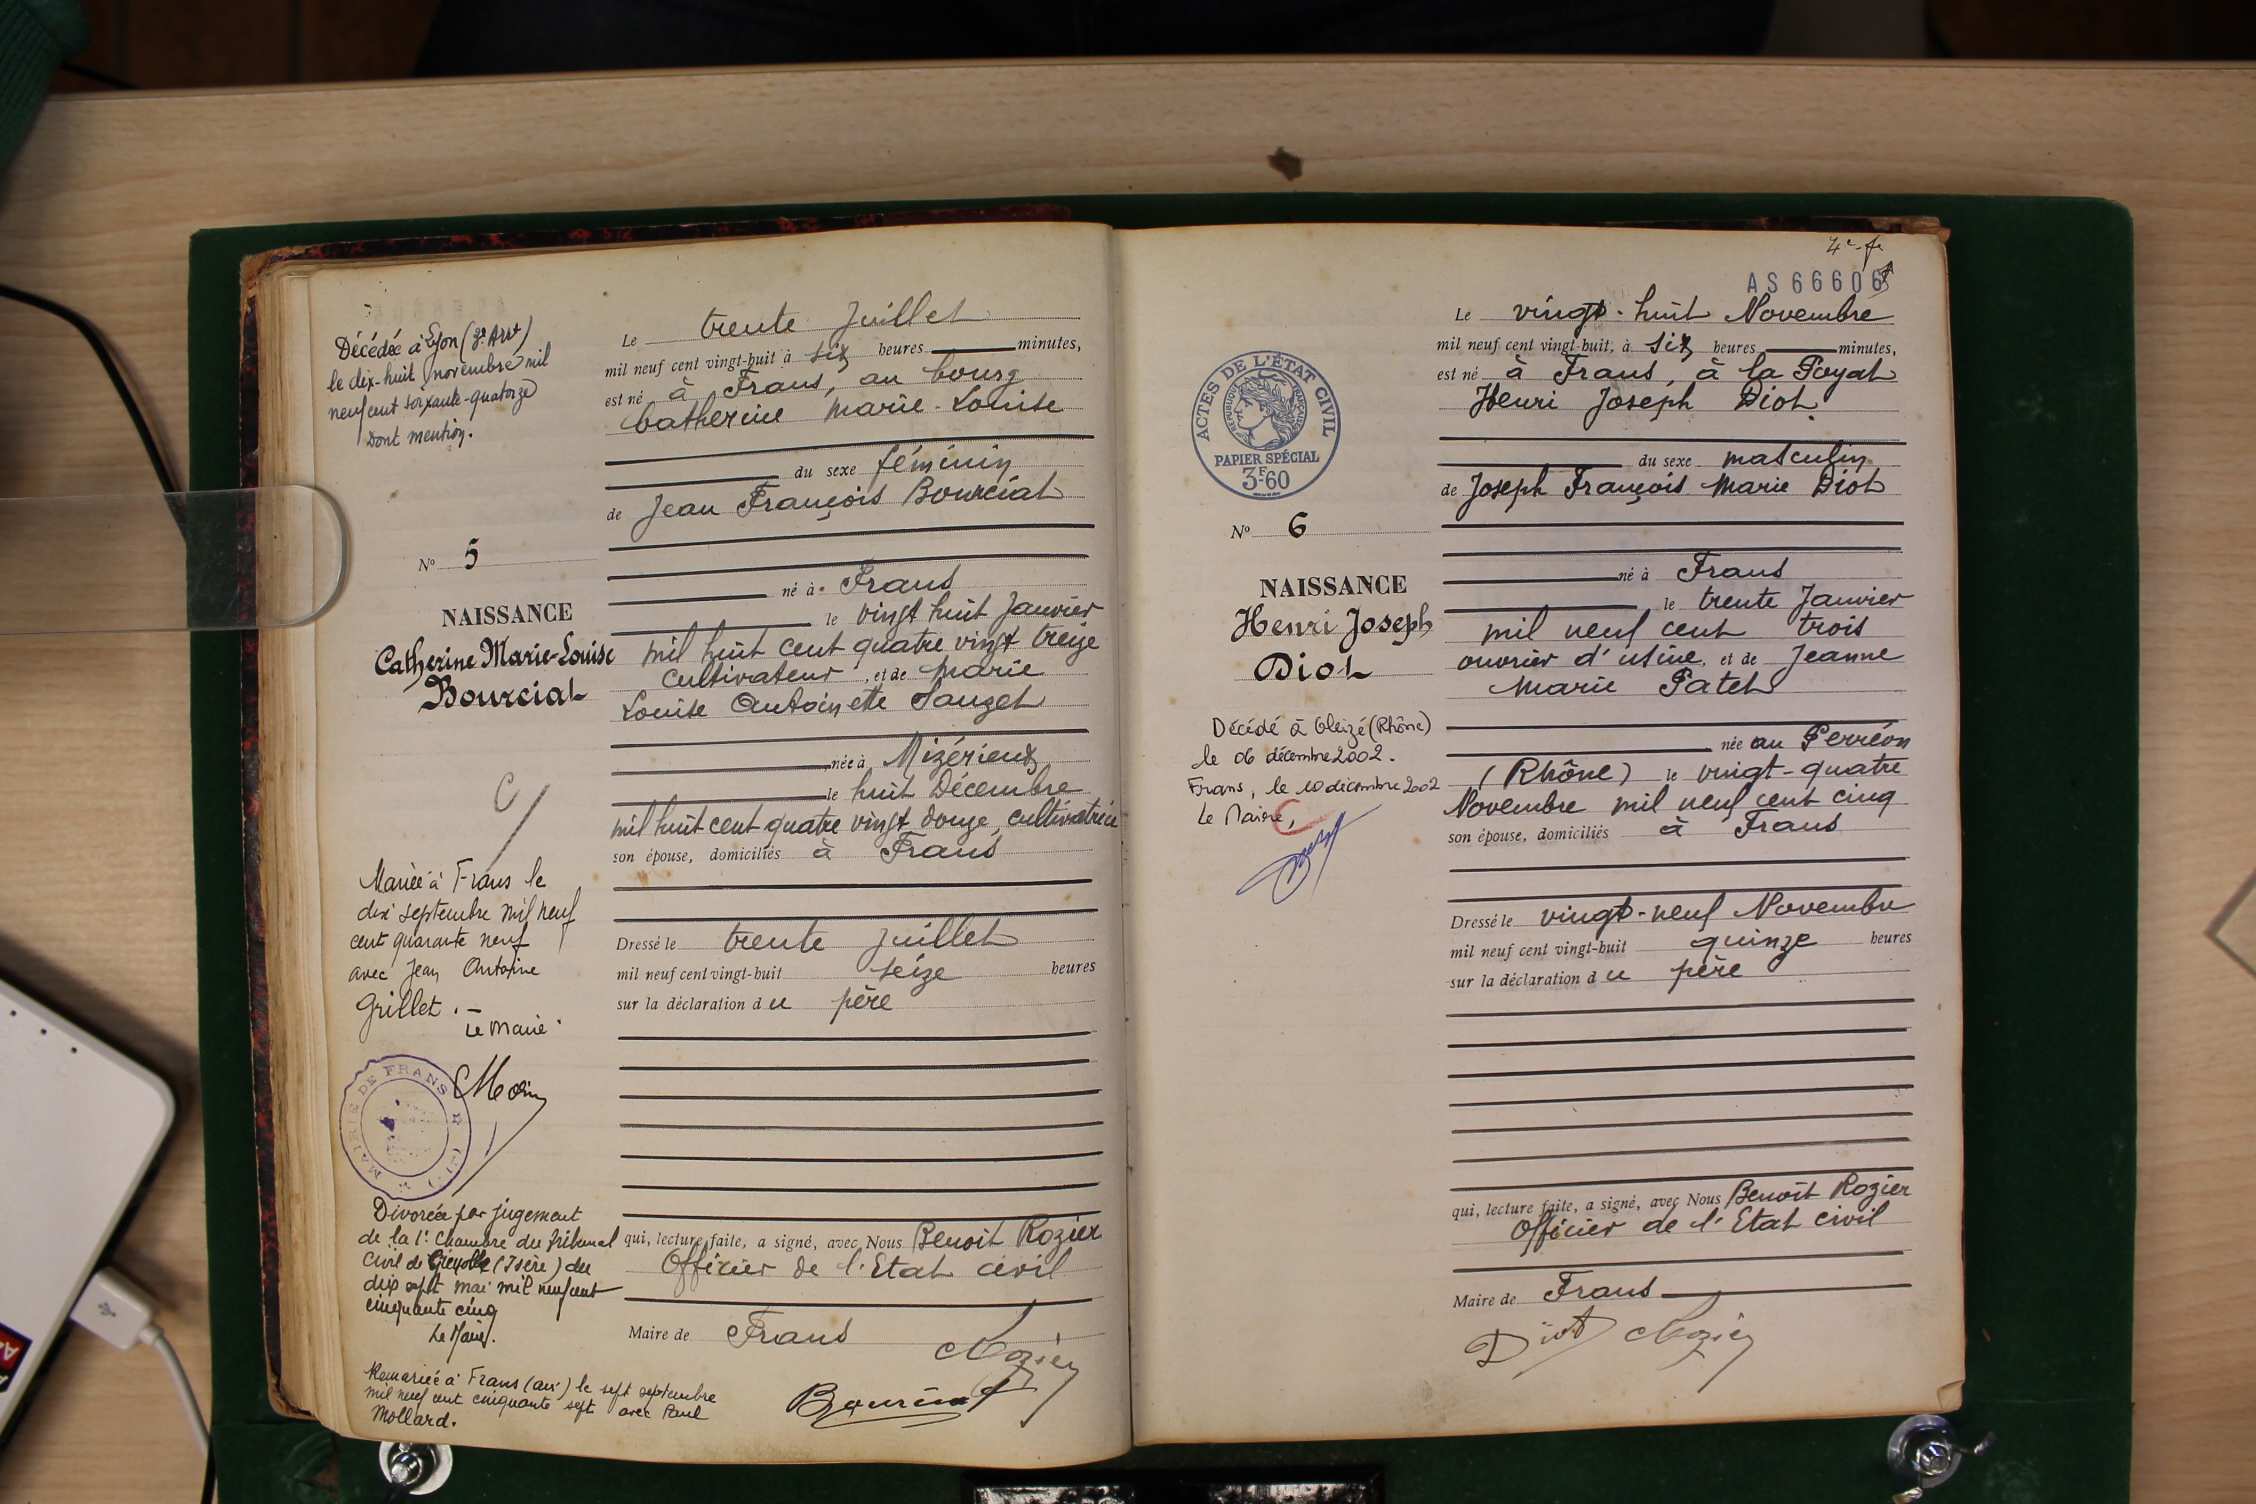 Décédée à Lyon (3e Arrt)
le dix-huit novembre mil
neuf cent soixante-quatorze
Dont mention.
No 5
NAISSANCE
Catherine Marie-Louise
Bourcial
Mariée à Frans le
dix septembre mil neuf
cent quarante neuf
avec Jean Antoine
Grillet.
Le Maire
MAIRIE DE FRANS
Divorcée par jugement
de la 1e Chambre du Tribunal
Civil de Grenoble (Isère) du
dix sept mai mil neuf cent
cinquante cinq
Le Maire.
Remariée à Frans (Ain) le sept septembre
mil neuf cent cinquante sept avec Paul
Mollard.
Le trente Juillet
mil neuf cent vingt-huit à six heures minutes,
est né à Frans, au bourg
Catherine Marie-Louise
du sexe féminin
de Jean François Bourcial
né à Frans
le vingt huit Janvier
mil huit cent quatre vingt treize
cultivateur, et de Marie
Louise Antoinette Sauzet
née à Mizérieux
le huit Décembre
mil huit cent quatre vingt douze, cultivatrice
son épouse, domiciliés à Frans
Dressé le trente Juillet
mil neuf cent vingt-huit seize heures
sur la déclaration du père
qui, lecture faite, a signé, avec Nous Benoit Rozier
Officier de l'Etat civil
Maire de Frans
Rozier
Bourcial
4e f.
AS 66606
ACTES DE L'ÉTAT CIVIL
RÉPUBLIQUE FRANÇAISE
PAPIER SPÉCIAL
3F60
No 6
NAISSANCE
Henri Joseph
Diot
Décédé à Gleizé (Rhône)
le 06 décembre 2002.
Frans, le 10 décembre 2002
Le Maire,
Le vingt-huit Novembre
mil neuf cent vingt-huit, à six heures minutes,
est né à Frans, à la Poyat
Henri Joseph Diot
du sexe masculin
de Joseph François Marie Diot
né à Frans
le trente Janvier
mil neuf cent trois
ouvrier d'usine, et de Jeanne
Marie Patet
née au Perréon
(Rhône) le vingt-quatre
Novembre mil neuf cent cinq
son épouse, domiciliés à Frans
Dressé le vingt-neuf Novembre
mil neuf cent vingt-huit quinze heures
sur la déclaration du père
qui, lecture faite, a signé, avec Nous Benoît Rozier
Officier de l'Etat civil
Maire de Frans
Diot Rozier